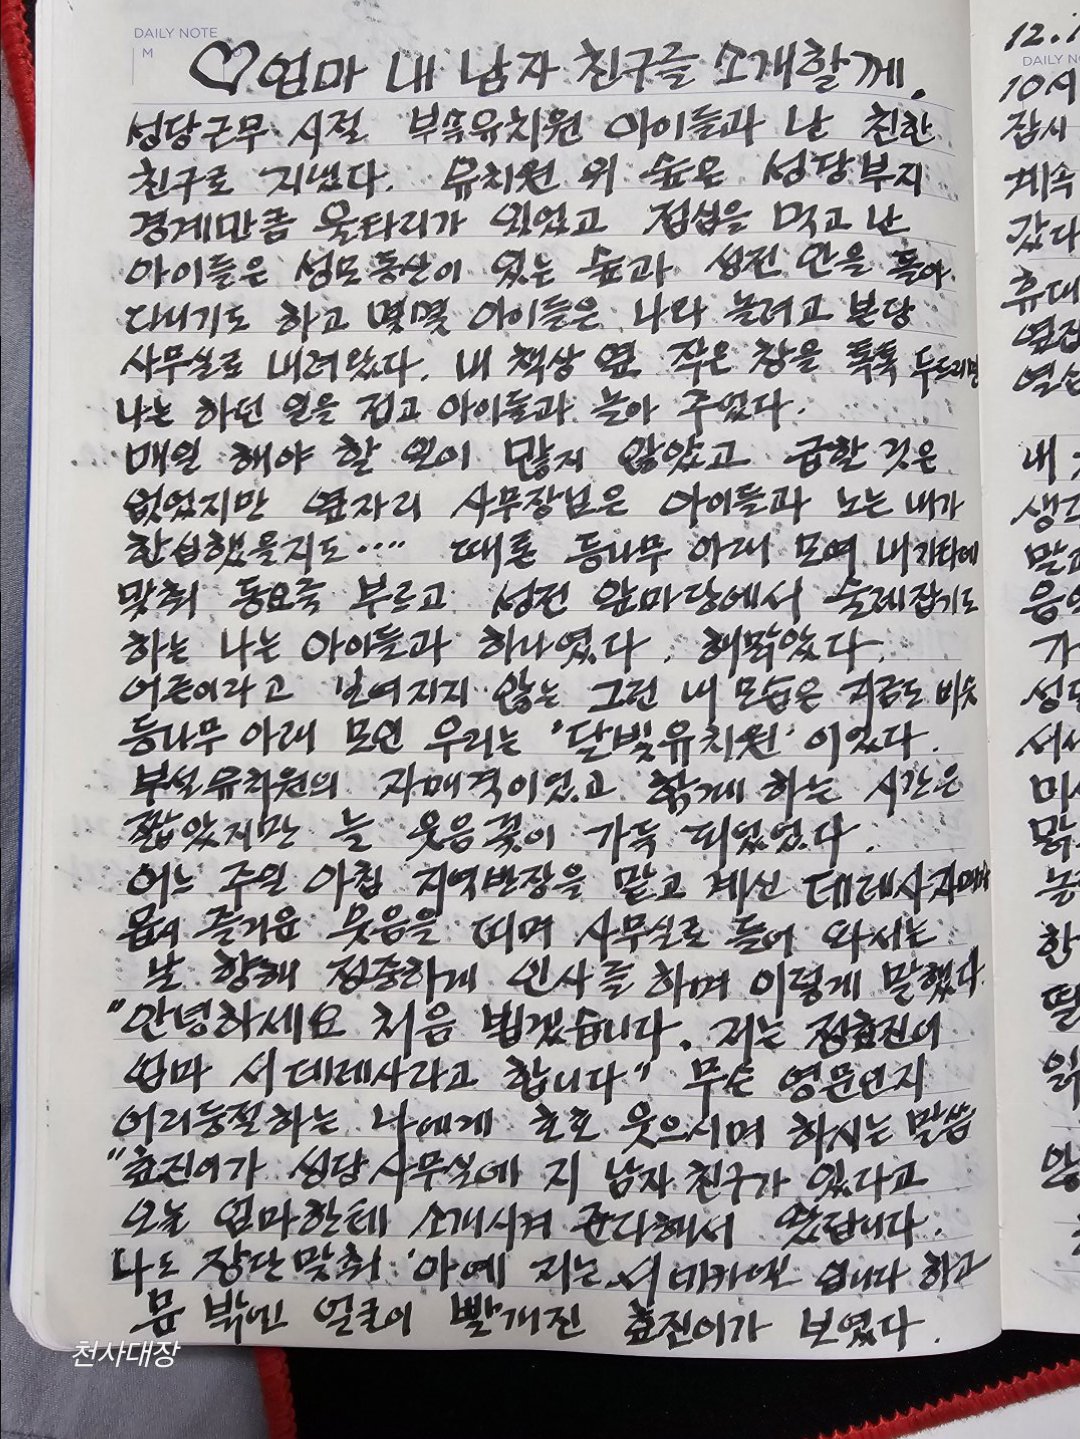 DAILY NOTE
M
♡엄마 내 남자 친구를 소개할께.
성당근무 시절 부속유치원 아이들과 난 친한
친구로 지냈다. 유치원 위 숲은 성당부지
경계만큼 울타리가 있었고 점심을 먹고 난
아이들은 성모동산이 있는 숲과 성전 안을 돌아
다니기도 하고 몇몇 아이들은 나와 놀려고 본당
사무실로 내려왔다. 내 책상 옆 작은 창을 톡톡 두드리면
나는 하던 일을 접고 아이들과 놀아 주었다.
매일 해야 할 일이 많지 않았고 급할 것은
없었지만 옆자리 사무장님은 아이들과 노는 내가
한심했을지도.... 때론 등나무 아래 모여 내 기타에
맞춰 동요를 부르고 성전 앞마당에서 술래잡기도
하는 나는 아이들과 하나였다. 해맑았다.
어른이라고 보여지지 않는 그런 내 모습은 지금도 비슷
등나무 아래 모인 우리는 '달빛유치원' 이었다.
부설유치원의 자매격이었고 함께 하는 시간은
짧았지만 늘 웃음꽃이 가득 피었었다.
어느 주일 아침 지역반장을 맡고 계신 데레사자매님
몹시 즐거운 웃음을 띠며 사무실로 들어 와서는
날 향해 정중하게 인사를 하며 이렇게 말했다.
"안녕하세요 처음 뵙겠습니다. 저는 정효진이
엄마 서데레사라고 합니다" 무슨 영문인지
어리둥절하는 나에게 호호 웃으시며 하시는 말씀
"효진이가 성당사무실에 지 남자친구가 있다고
오늘 엄마한테 소개시켜 준다해서 왔답니다.
나도 장단맞춰 '아예 저는 서 입니다 하고
문 밖엔 얼굴이 빨개진 효진이가 보였다.
천사대장
DAILY NO
잠시
계속
갔다
휴대
옆집
내
생각
가
성당
한